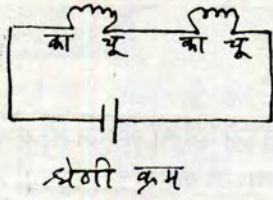 का चू का चू
श्रेणी क्रम